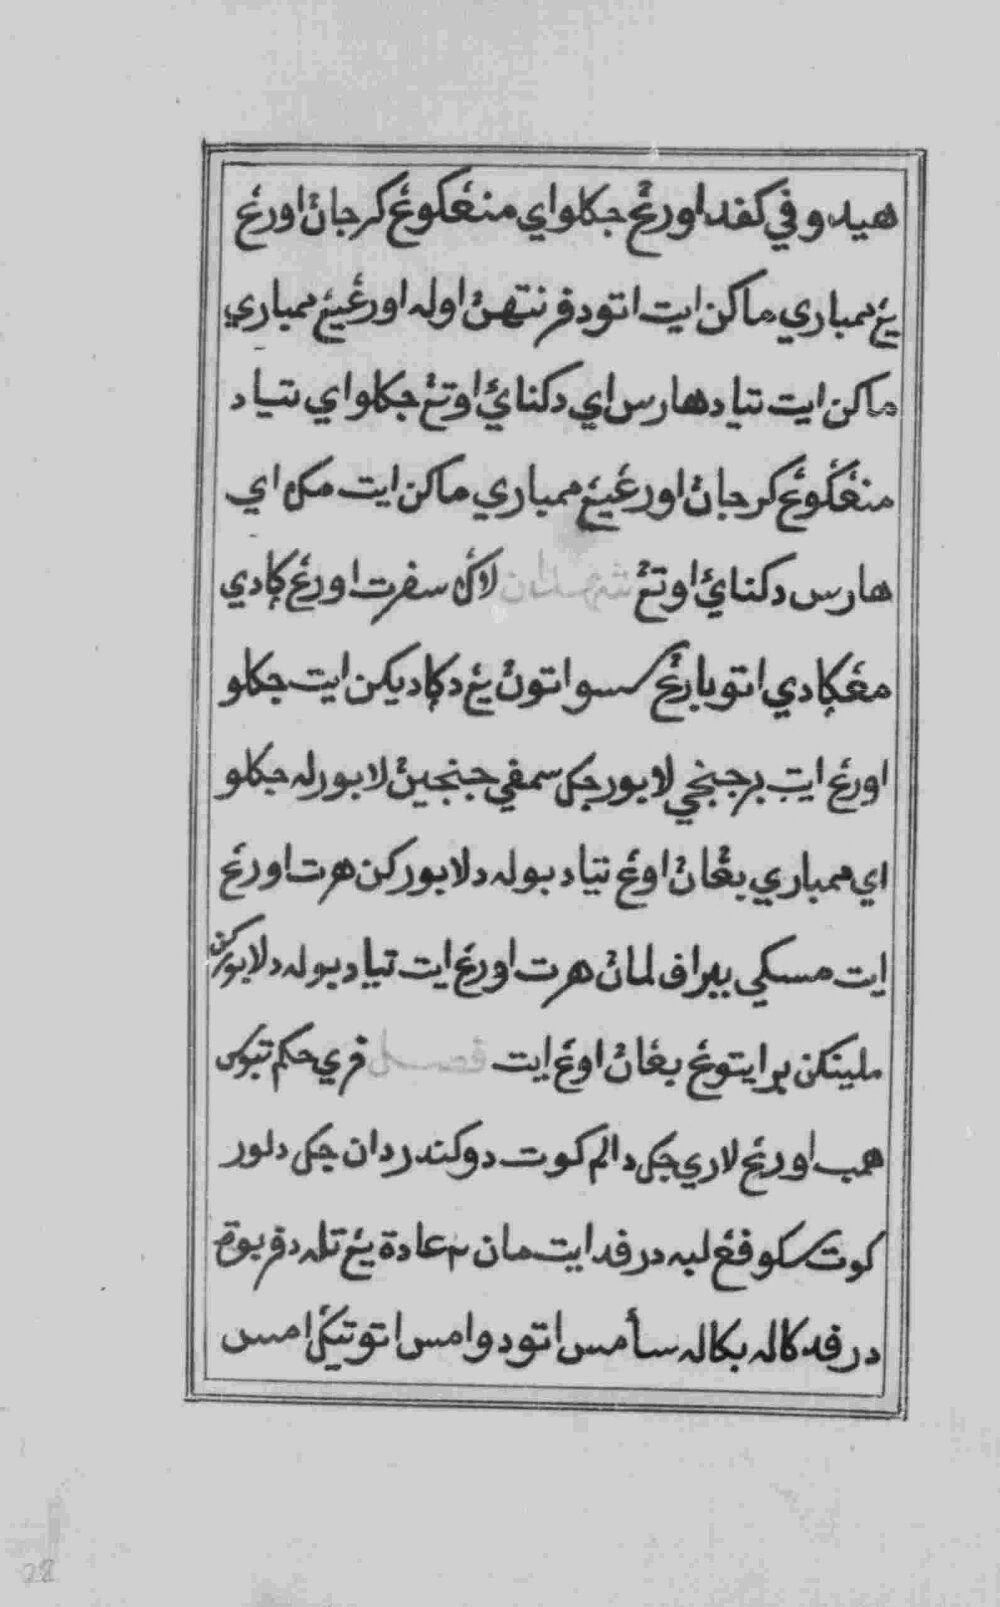 هيدوفي كفد اورڠ جكلو اي منڠكوڠ كرجاٮٔ اورڠ
يڠ ممباري ماكن ايت اتو د فرنتهڽ اوله اورڠيڠ ممباري
ماكن ايت تياد هارس اي دكناي اوتڠ جكلو اي تياد
منڠكوڠ كرجاٮٔ اورڠيڠ ممباري ماكن ايت مك اي
هارس دكناي اوتڠ لاݢ سفرت اورڠ كادي
مڠكادي اتو بارڠ سسواتوڽ يڠ دكاديكن ايت جكلو
اورڠ ايت برجنجي لابور جك سمفي جنجيڽ لابورله جكلو
اي ممباري بڠاڽ اوڠ تياد بوله دلابوركن هرت اورڠ
ايت مسكي ببراف لماڽ هرت اورڠ ايت تياد بوله دلابوركن
ملينكن برايتوڠ بڠاڽ اوڠ ايت فصل فري حكم تبوس
همب اورڠ لاري جك دالم كوت دوكندردان جك دلور
كوت سكوفڠ لبه درفد ايت مان٢ عادة يڠ تله دفربوة
درفد كاله بكاله سأمس اتو دوامس اتو تيݢ امس